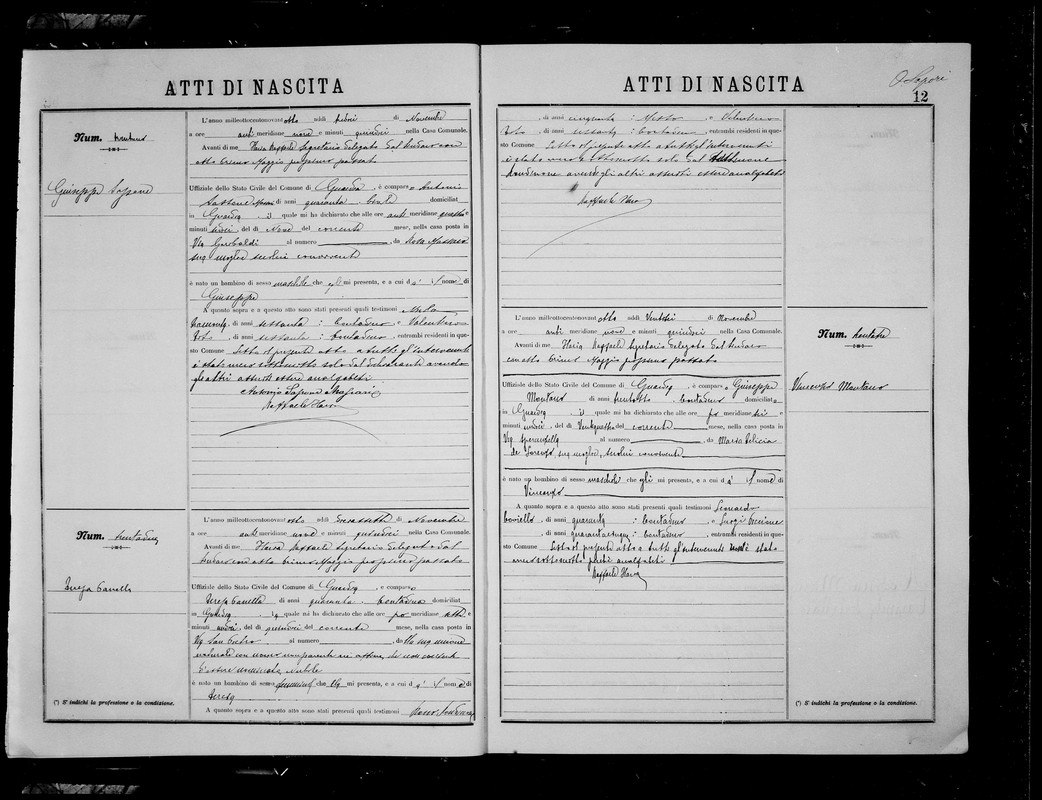 ATTI DI NASCITA
Num. trentuno
Giuseppe Sapone
L'anno millottocentonovant otto addì di Novembre
a ore anti meridiane nove e minuti quindici nella Casa Comunale.
Avanti di me Raffaele Segretario delegato dal Sindaco con
atto primo Maggio prossimo passato
Uffiziale dello Stato Civile del Comune di Guardia, è comparso Antonio
Sapone di anni quaranta domiciliat
in Guardia il quale mi ha dichiarato che alle ore anti meridiane quattro e
minuti del dì Nove del corrente mese, nella casa posta in
Via Garibaldi al numero da Rosa
sua moglie seco lui convivente
è nato un bambino di sesso maschile che gli mi presenta, e a cui dà il nome di
Giuseppe
A quanto sopra e a questo atto sono stati presenti quali testimoni
di anni settanta contadino e Valentino
di anni sessanta contadino, entrambi residenti in que-
sto Comune Letto il presente atto a tutti gl'intervenuti
è stato meco sottoscritto solo dal dichiarante avendo
gli altri asserito essere analfabeti
Antonio Sapone
Raffaele
Num. trentadue
Teresa Canella
L'anno millottocentonovant otto addì diecissette di Novembre
a ore anti meridiane nove e minuti quindici nella Casa Comunale.
Avanti di me Raffaele Segretario delegato dal
Sindaco con atto primo Maggio prossimo passato
Uffiziale dello Stato Civile del Comune di Guardia, è comparso
Teresa Canella di anni quaranta contadina domiciliat
in Guardia la quale mi ha dichiarato che alle ore po meridiane
minuti del dì quindici del corrente mese, nella casa posta in
Via San Pietro al numero da lla sua unione
naturale con uomo non parente nè affine
d'essere nubile
è nato un bambino di sesso femminile che mi presenta, e a cui dà il nome di
Teresa
A quanto sopra e a questo atto sono stati presenti quali testimoni
(*) S' indichi la professione o la condizione.
ATTI DI NASCITA
12
di anni cinquanta e Valentino
di anni sessanta contadino, entrambi residenti in que-
sto Comune Letto il presente atto a tutti gl'intervenuti
è stato meco sottoscritto solo dal testimone
avendo gli altri asserito essere analfabeti
Raffaele
Num. trentatre
Vincenzo Montano
L'anno millottocentonovant otto addì Ventisei di Novembre
a ore anti meridiane nove e minuti quindici nella Casa Comunale.
Avanti di me Raffaele Segretario delegato dal Sindaco
con atto primo Maggio prossimo passato
Uffiziale dello Stato Civile del Comune di Guardia, è comparso Giuseppe
Montano di anni trentotto contadino domiciliato
in Guardia il quale mi ha dichiarato che alle ore po meridiane sei e
minuti del dì Ventiquattro del corrente mese, nella casa posta in
Via al numero da Maria Felicia
de Lorenzo sua moglie, seco lui convivente
è nato un bambino di sesso maschile che gli mi presenta, e a cui dà il nome di
Vincenzo
A quanto sopra e a questo atto sono stati presenti quali testimoni Leonardo
Coviello, di anni quaranta contadino, e Luigi
di anni quarantacinque contadino, entrambi residenti in que-
sto Comune Letto il presente atto a tutti gl'intervenuti è stato
meco sottoscritto perchè analfabeti
Raffaele
(*) S' indichi la professione o la condizione.